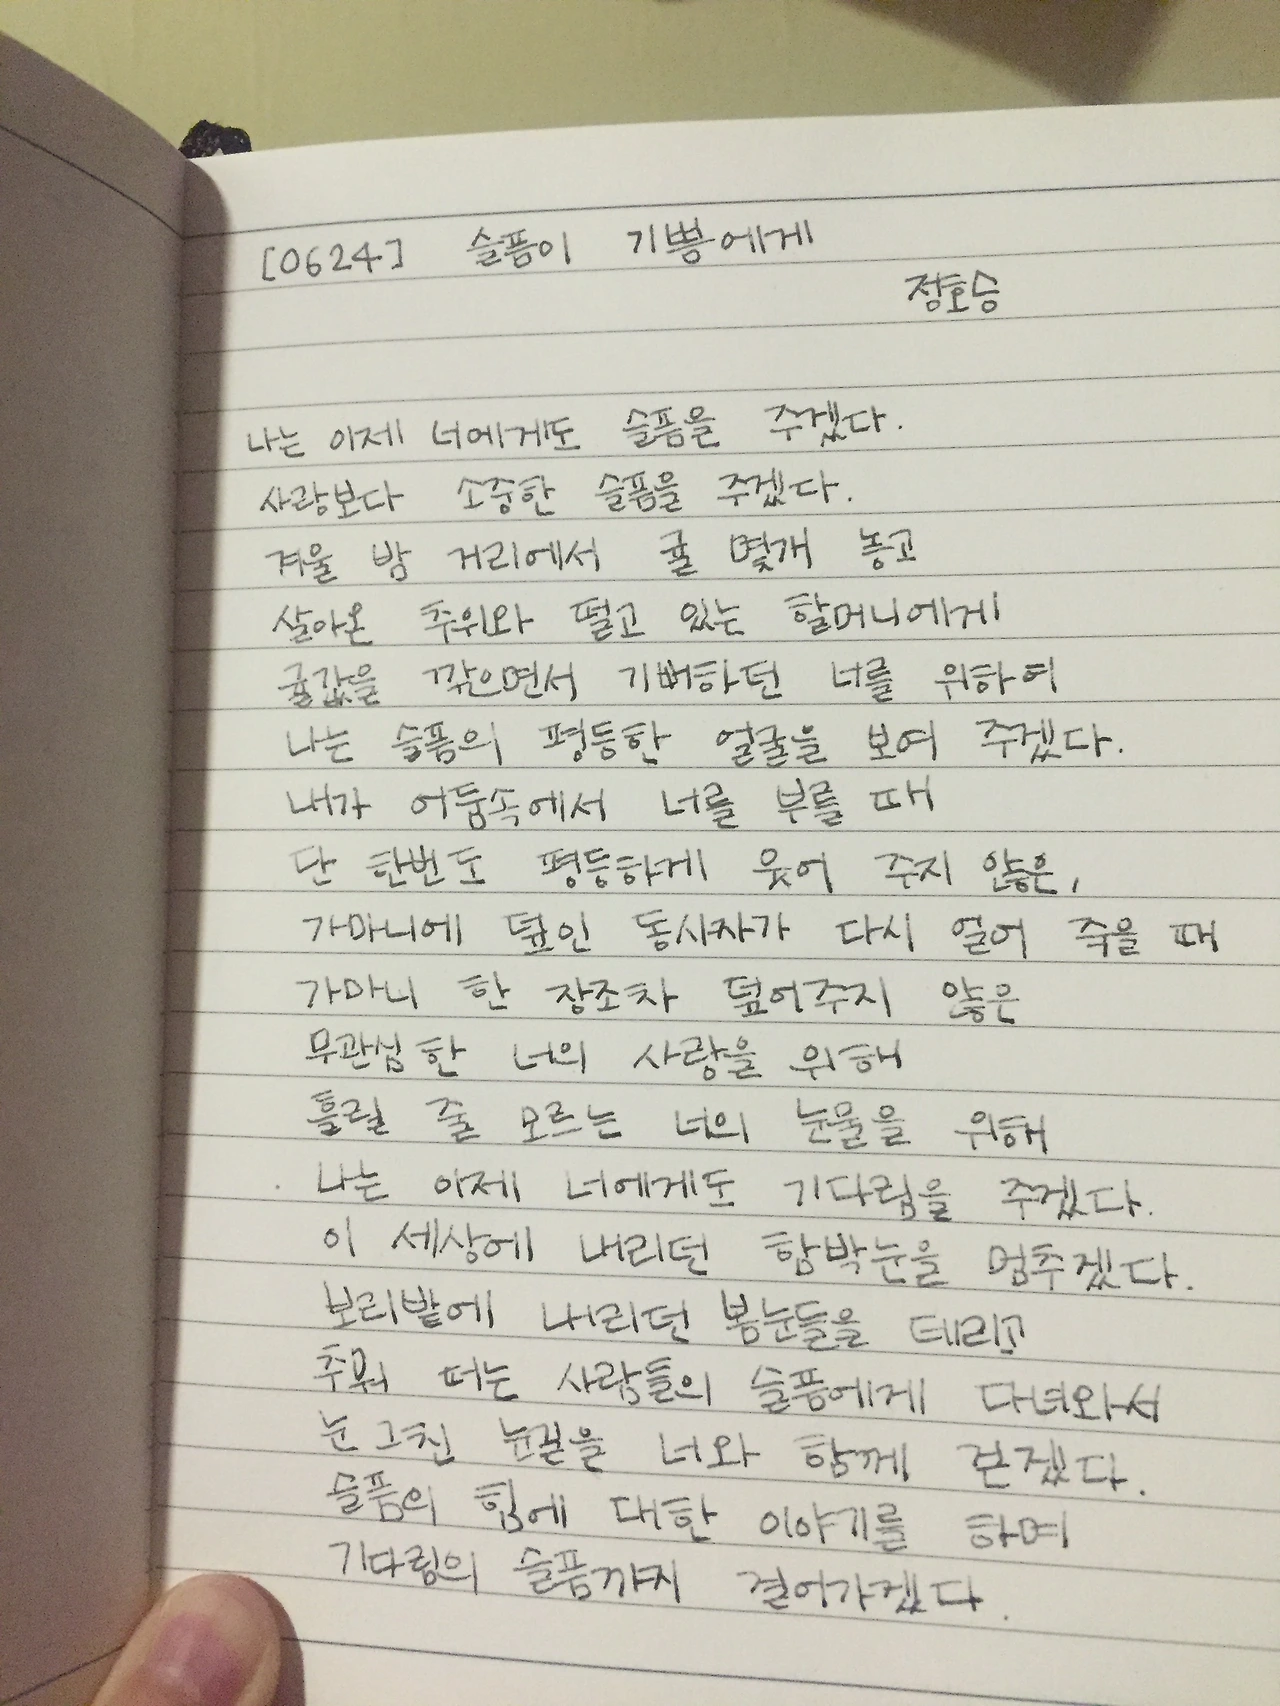 [0624] 슬픔이 기쁨에게
정호승
나는 이제 너에게도 슬픔을 주겠다.
사랑보다 소중한 슬픔을 주겠다.
겨울 밤 거리에서 귤 몇개 놓고
살아온 추위와 떨고 있는 할머니에게
귤값을 깎으면서 기뻐하던 너를 위하여
나는 슬픔의 평등한 얼굴을 보여 주겠다.
내가 어둠속에서 너를 부를 때
단 한번도 평등하게 웃어 주지 않은,
가마니에 덮인 동사자가 다시 얼어 죽을 때
가마니 한 장조차 덮어주지 않은
무관심한 너의 사랑을 위해
흘릴 줄 모르는 너의 눈물을 위해
나는 이제 너에게도 기다림을 주겠다.
이 세상에 내리던 함박눈을 멈추겠다.
보리밭에 내리던 봄눈들을 데리고
추워 떠는 사람들의 슬픔에게 다녀와서
눈 그친 눈길을 너와 함께 걷겠다.
슬픔의 힘에 대한 이야기를 하며
기다림의 슬픔까지 걸어가겠다.